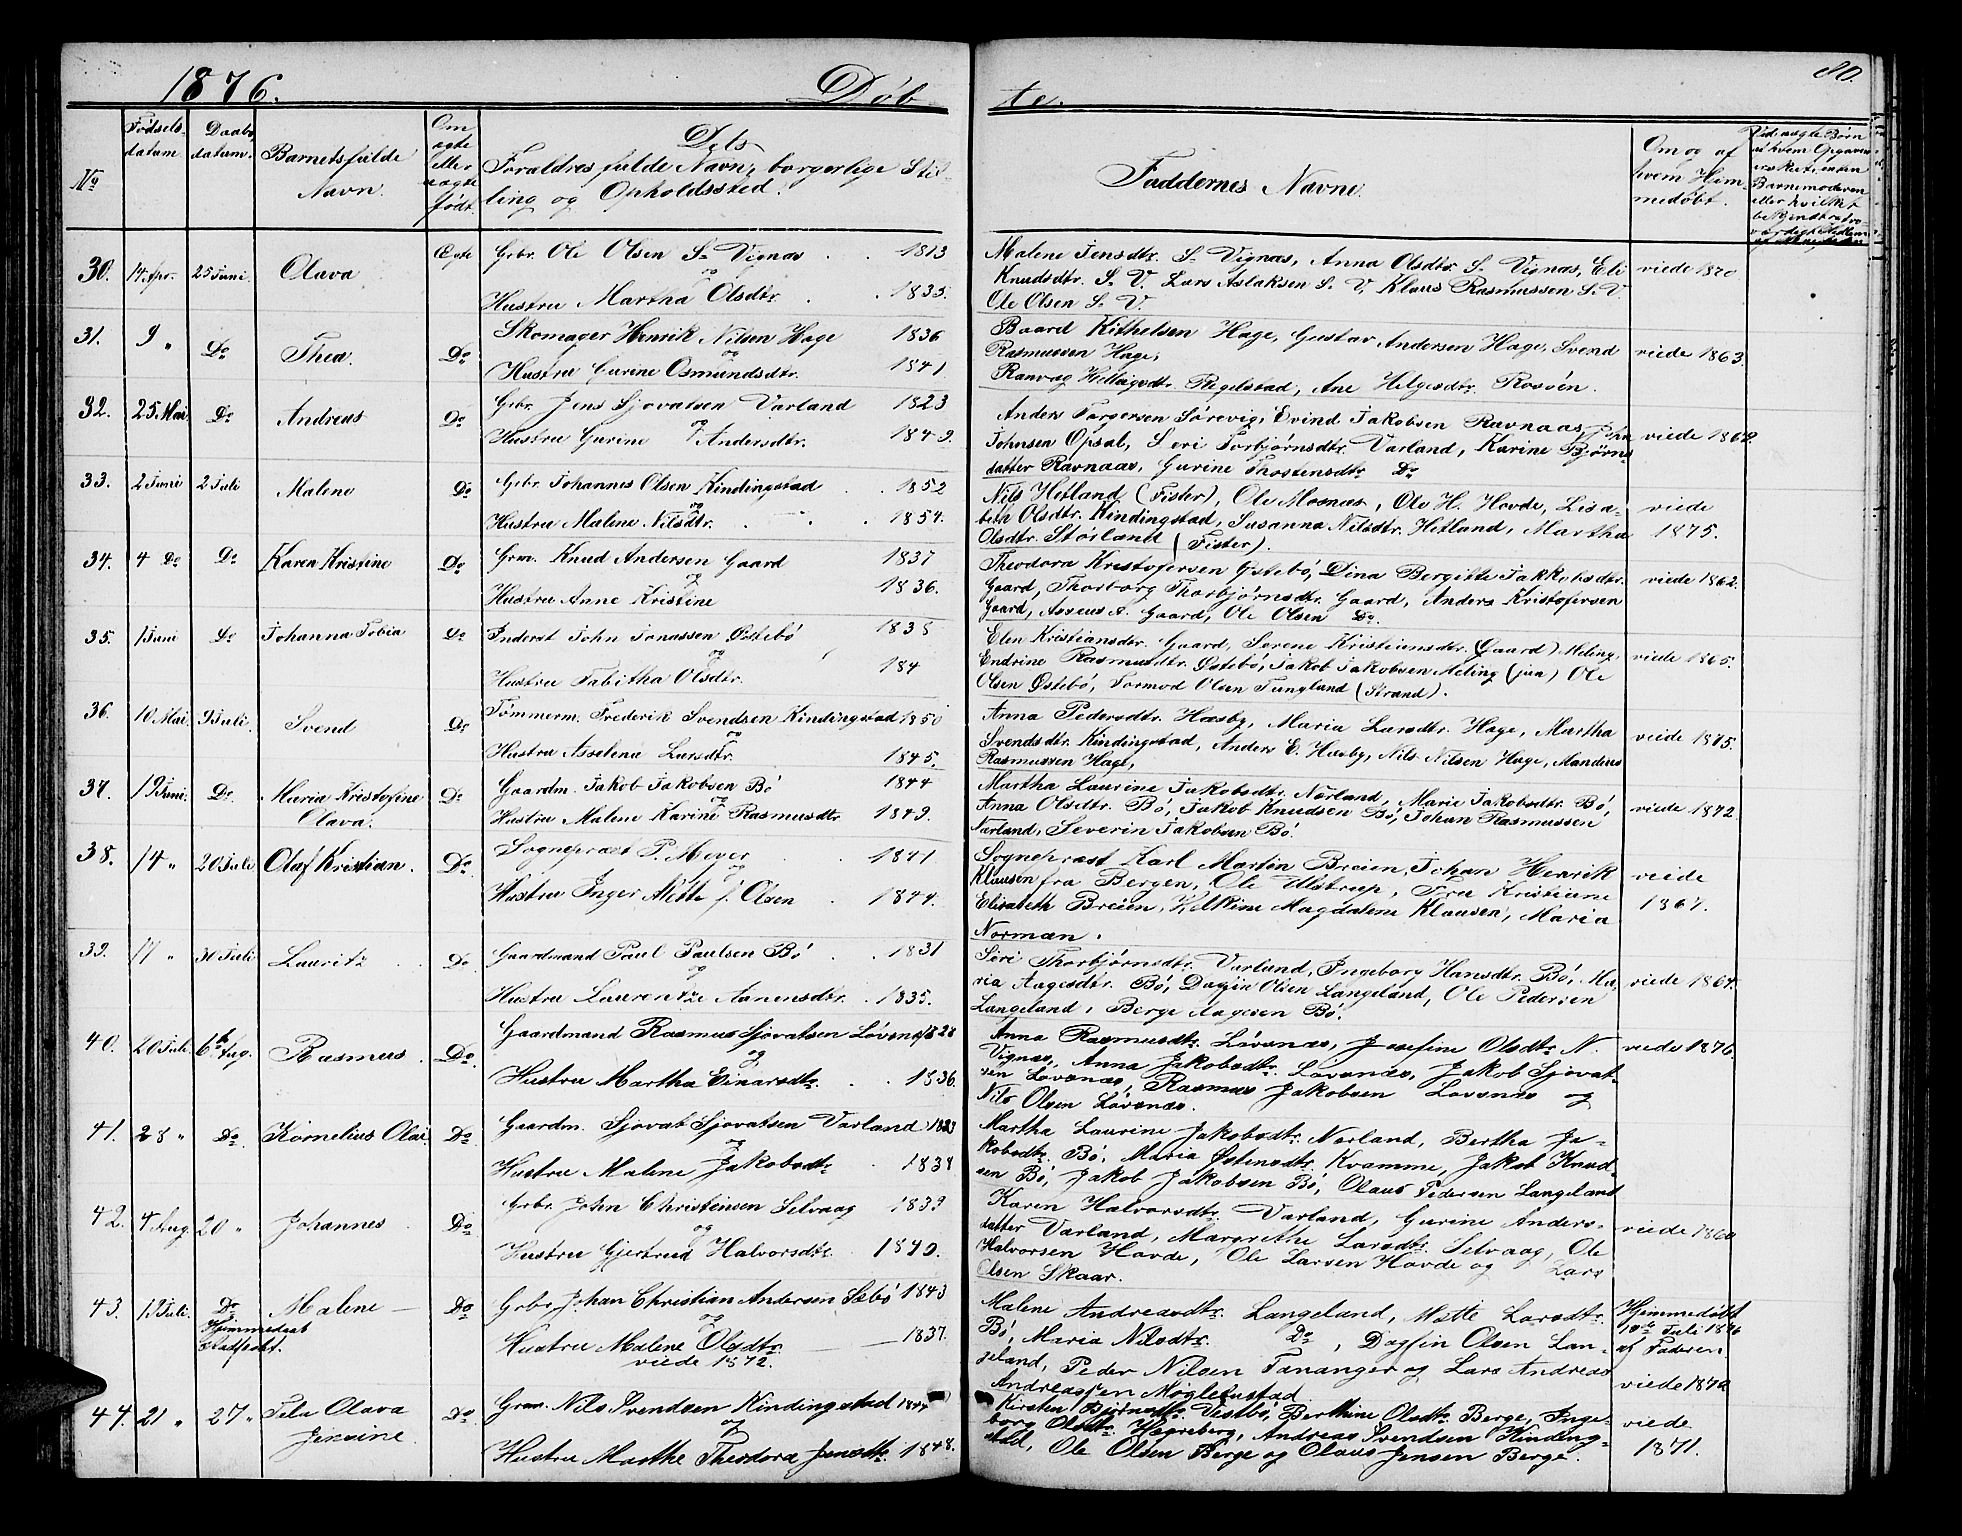 1876. Døbte. 80.
No
Fødsels-
datum
Daabs
datum.
Barnets fulde
Navn
Om
ægte
eller
uægte
født.
Dets
Foraldres fulde Navn, borgerlige Stil-
ling og Opholdssted.
Faddernes Navne.
Om og af
hvem Hjem-
medøbt.
30. 14. Apr. 25 Juni Olava Ægte Gbr. Ole Olsen S. Vignæs 1813
og
Hustru Martha Olsdtr. 1835.
Malene Jensdtr. S. Vignæs, Anna Olsdtr. S. Vignæs, Eli
Knudsdtr. S. V. Lars Aslaksen S. V. Klaus Rasmussen S. V.
Ole Olsen S. V.
viede 1870
31. 9 " Do Thea. Do Skomager Henrik Nilsen Hage 1836
og
Hustru Gurine Osmundsdtr. 1841
Baard Kithelsen Hage, Gustav Andersen Hage, Svend
Rasmussen Hage,
Ranvæg Helleigsdtr. Regelstad, Ane Helgesdtr. Rossøen.
viede 1863.
32. 25 Mai. Do Andreas Do Gbr. Jens Sjovatsen Varland 1823
og
Hustru Gurine Andersdtr. 1849.
Anders Torgersen Sørevig, Evind Jakobsen Ravnaas, John
Johnsen Opsal, Seri Torbjørnsdtr. Varland, Karine Bjørns
datter Ravnaas, Gurine Thostensdtr Do
viede 1862
33. 2 Juni 2 Juli Malene Do Gbr. Johannes Olsen Kindingstad 1852
og
Hustru Malene Nilsdtr. 1854.
Nils Hetland (Fister), Ole Mosnæs, Ole H. Hovde, Lisa-
beth Olsdtr. Kindingstad, Susanna Nilsdtr. Hetland, Martha
Olsdtr. Storland (Fister).
viede
1875.
34. 4 Do Do Karen Kristine Do Grm. Knud Andersen Gaard 1837
og
Hustru Anne Kristine 1836.
Theodora Kristofersen Østebø, Dina Bergitte Jakkobsdtr.
Gaard, Thorborg Thorbjørnsdtr. Gaard, Anders Kristofersen
Gaard, Asseus A. Gaard, Ole Olsen Do.
viede 1862.
35. 1 Juni Do Johanna Tobia Do Inderst John Jonassen Østebø 1838
og
Hustru Tabitha Olsdtr. 184
Elen Kristiansdtr. Gaard, Serene Kristiensdtr. (Gaard) Meling,
Endrine Rasmusdtr. Østebø, Jakob Jakobsen Meling (jun) Ole
Olsen Østebø, Tormod Olsen Tungland (Strand).
viede 1865.
36. 10 Mai. 9 Juli. Svend Do Tømmerm. Frederik Svendsen Kindingstad 1850
og
Hustru Asselena Larsdtr. 1845.
Anna Pedersdtr. Hæsby, Maria Larsdtr. Hage, Martha
Svendsdtr. Kindingstad, Anders E. Husby, Nils Nilsen Hage, Mandrus
Rasmussen Hage,
viede 1875.
37. 19 Juni. Do. Maria Kristofine
Olava.
Do Gaardm. Jakob Jakobsen Bø 1844
og
Hustru Malene Karine Rasmusdtr. 1849.
Martha Laurine Jakobsdtr. Nørland, Marie Jakobsdtr. Bø,
Anna Olsdtr. Bø, Jakob Knudsen Bø, Johan Rasmussen
Narland, Severin Jakobsen Bø
viede 1872.
38. 14 " 20 Juli Olaf Kristian. Do Sognepræst P. Meyer 1841
og
Hustru Inger Mette f. Olsen 1844.
Sognepræst Karl Martin Breien, Johan Henrik
Klausen fra Bergen, Ole Ulstrup, Fru Kristiane
Elisabeth Breien, Velkine Magdalene Klausen, Maria
Norman.
viede
1867.
39. 17 " 30 Juli Lauritz Do Gaardmand Paul Paulsen Bø 1831
og
Hustru Laurentze Aanensdtr. 1835.
Siri Thorbjørnsdtr. Varland, Ingeborg Hansdtr. Bø, Ma-
ria Aagesdtr. Bø, Dagfin Olsen Langeland, Ole Pedersen
Langeland, Berge Aagesen Bø.
viede 1864.
40. 20 Juli 6te Aug. Rasmus Do Gaardmand Rasmus Sjovatsen Løvsnæs 1828
og
Hustru Martha Einarsdtr. 1836.
Anna Rasmusdtr. Løvsnæs, Josefine Olsdtr. N.
Vignæs, Anna Jakobsdtr. Løvsnæs, Jakob Sjovat-
sen Løvsnæs, Rasmus Jakobsen Løvsnæs og
Nils Olsen Løvsnæs.
viede 1876
41. 28 " Do Kornelius Olai Do Gaardm. Sjovat Sjovatsen Varland 1823
og
Hustru Malene Jakobsdtr 1838
Martha Laurine Jakobsdtr. Nørland, Bertha Ja-
kobsdtr. Bø, Maria Østensdtr. Kvamme, Jakob Knud-
sen Bø, Jakob Jakobsen Bø, Olaus Pedersen Langeland
42. 4 Aug. 20 " Johannes Do Grbr. John Christensen Selvaag 1839
og
Hustru Gjertrud Halvorsdtr. 1840.
Karen Halvorsdtr. Varland, Gurine Anders-
datter Varland, Margrethe Larsdtr. Selvaag, Ole
Halvorsen Hovde, Ole Larsen Hovde og Lars
Olsen Skaar.
viede 1860
43. 19 Juli. Do
Hjemmedaab
stadfæstet.
Malene Do Grbr. Johan Christian Andersen Sæbø 1843
og
Hustru Malene Olsdtr. 1837.
viede 1872.
Malene Andreasdtr. Langeland, Mette Larsdtr.
Bø, Maria Nilsdtr. Do, Dagfin Olsen Lan-
geland, Peder Nilsen Tananger og Lars Andreas
Andreassen Mogletustad
Hjemmedøbt
19de Juli 1876
af Faderen
viede 1872
44. 21 " 27 " Tela Olava
Jensine
Do Grm. Nils Svendsen Kindingstad 1844
og
Hustru Marthe Theodora Jensdtr. 1848.
Kirsten Bjørnsdtr. Vestbø, Berthine Olsdtr. Berge, Inge-
borg Olsdtr. Hegreberg, Andreas Svendsen Kinding-
stad, Ole Olsen Berge og Olaus Jensen Berge.
viede
1871.